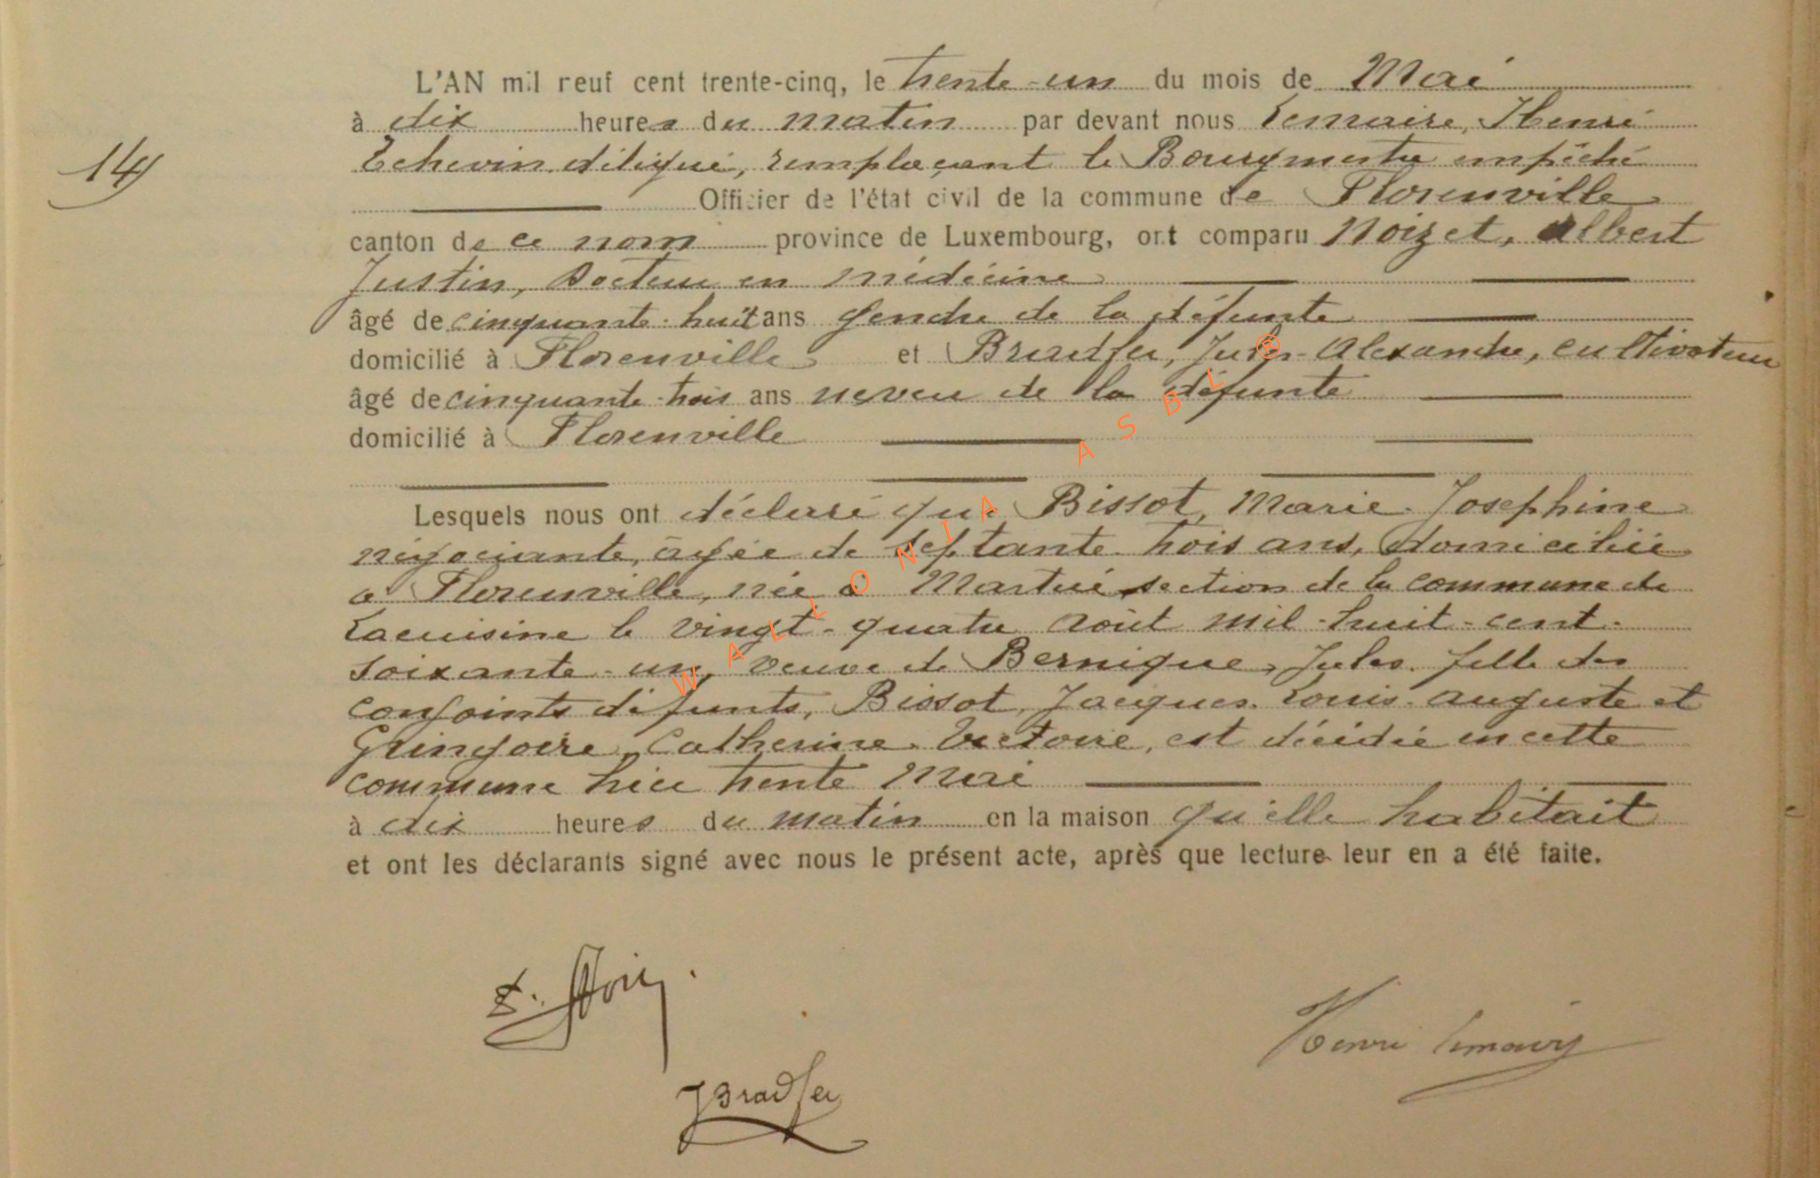 14
L'AN mil neuf cent trente-cinq, le trente-un du mois de Mai
à dix heures du matin par devant nous Lemaire, Henri
Echevin délégué, remplaçant le Bourgmestre empêché
Officier de l'état civil de la commune de Florenville
canton de ce nom province de Luxembourg, ont comparu Noizet, Albert
Justin, Docteur en médecine
âgé de cinquante-huit ans gendre de la défunte
domicilié à Florenville et Bradfer, Jules-Alexandre, cultivateur
âgé de cinquante-trois ans neveu de la défunte
domicilié à Florenville
Lesquels nous ont déclaré que Bissot, Marie-Josephine
négociante, âgée de septante-trois ans, domiciliée
à Florenville, née à Martué section de la commune de
Lacuisine le vingt-quatre Août mil-huit-cent-
soixante-un, veuve de Bernique, Jules, fille des
conjoints défunts, Bissot, Jacques-Louis-Auguste et
Gringoire, Catherine-Victoire, est décédée en cette
commune hier trente Mai
à dix heures du matin en la maison qu'elle habitait
et ont les déclarants signé avec nous le présent acte, après que lecture leur en a été faite.
JBradfer
Henri Lemaire
WALLONIA ASBL ®